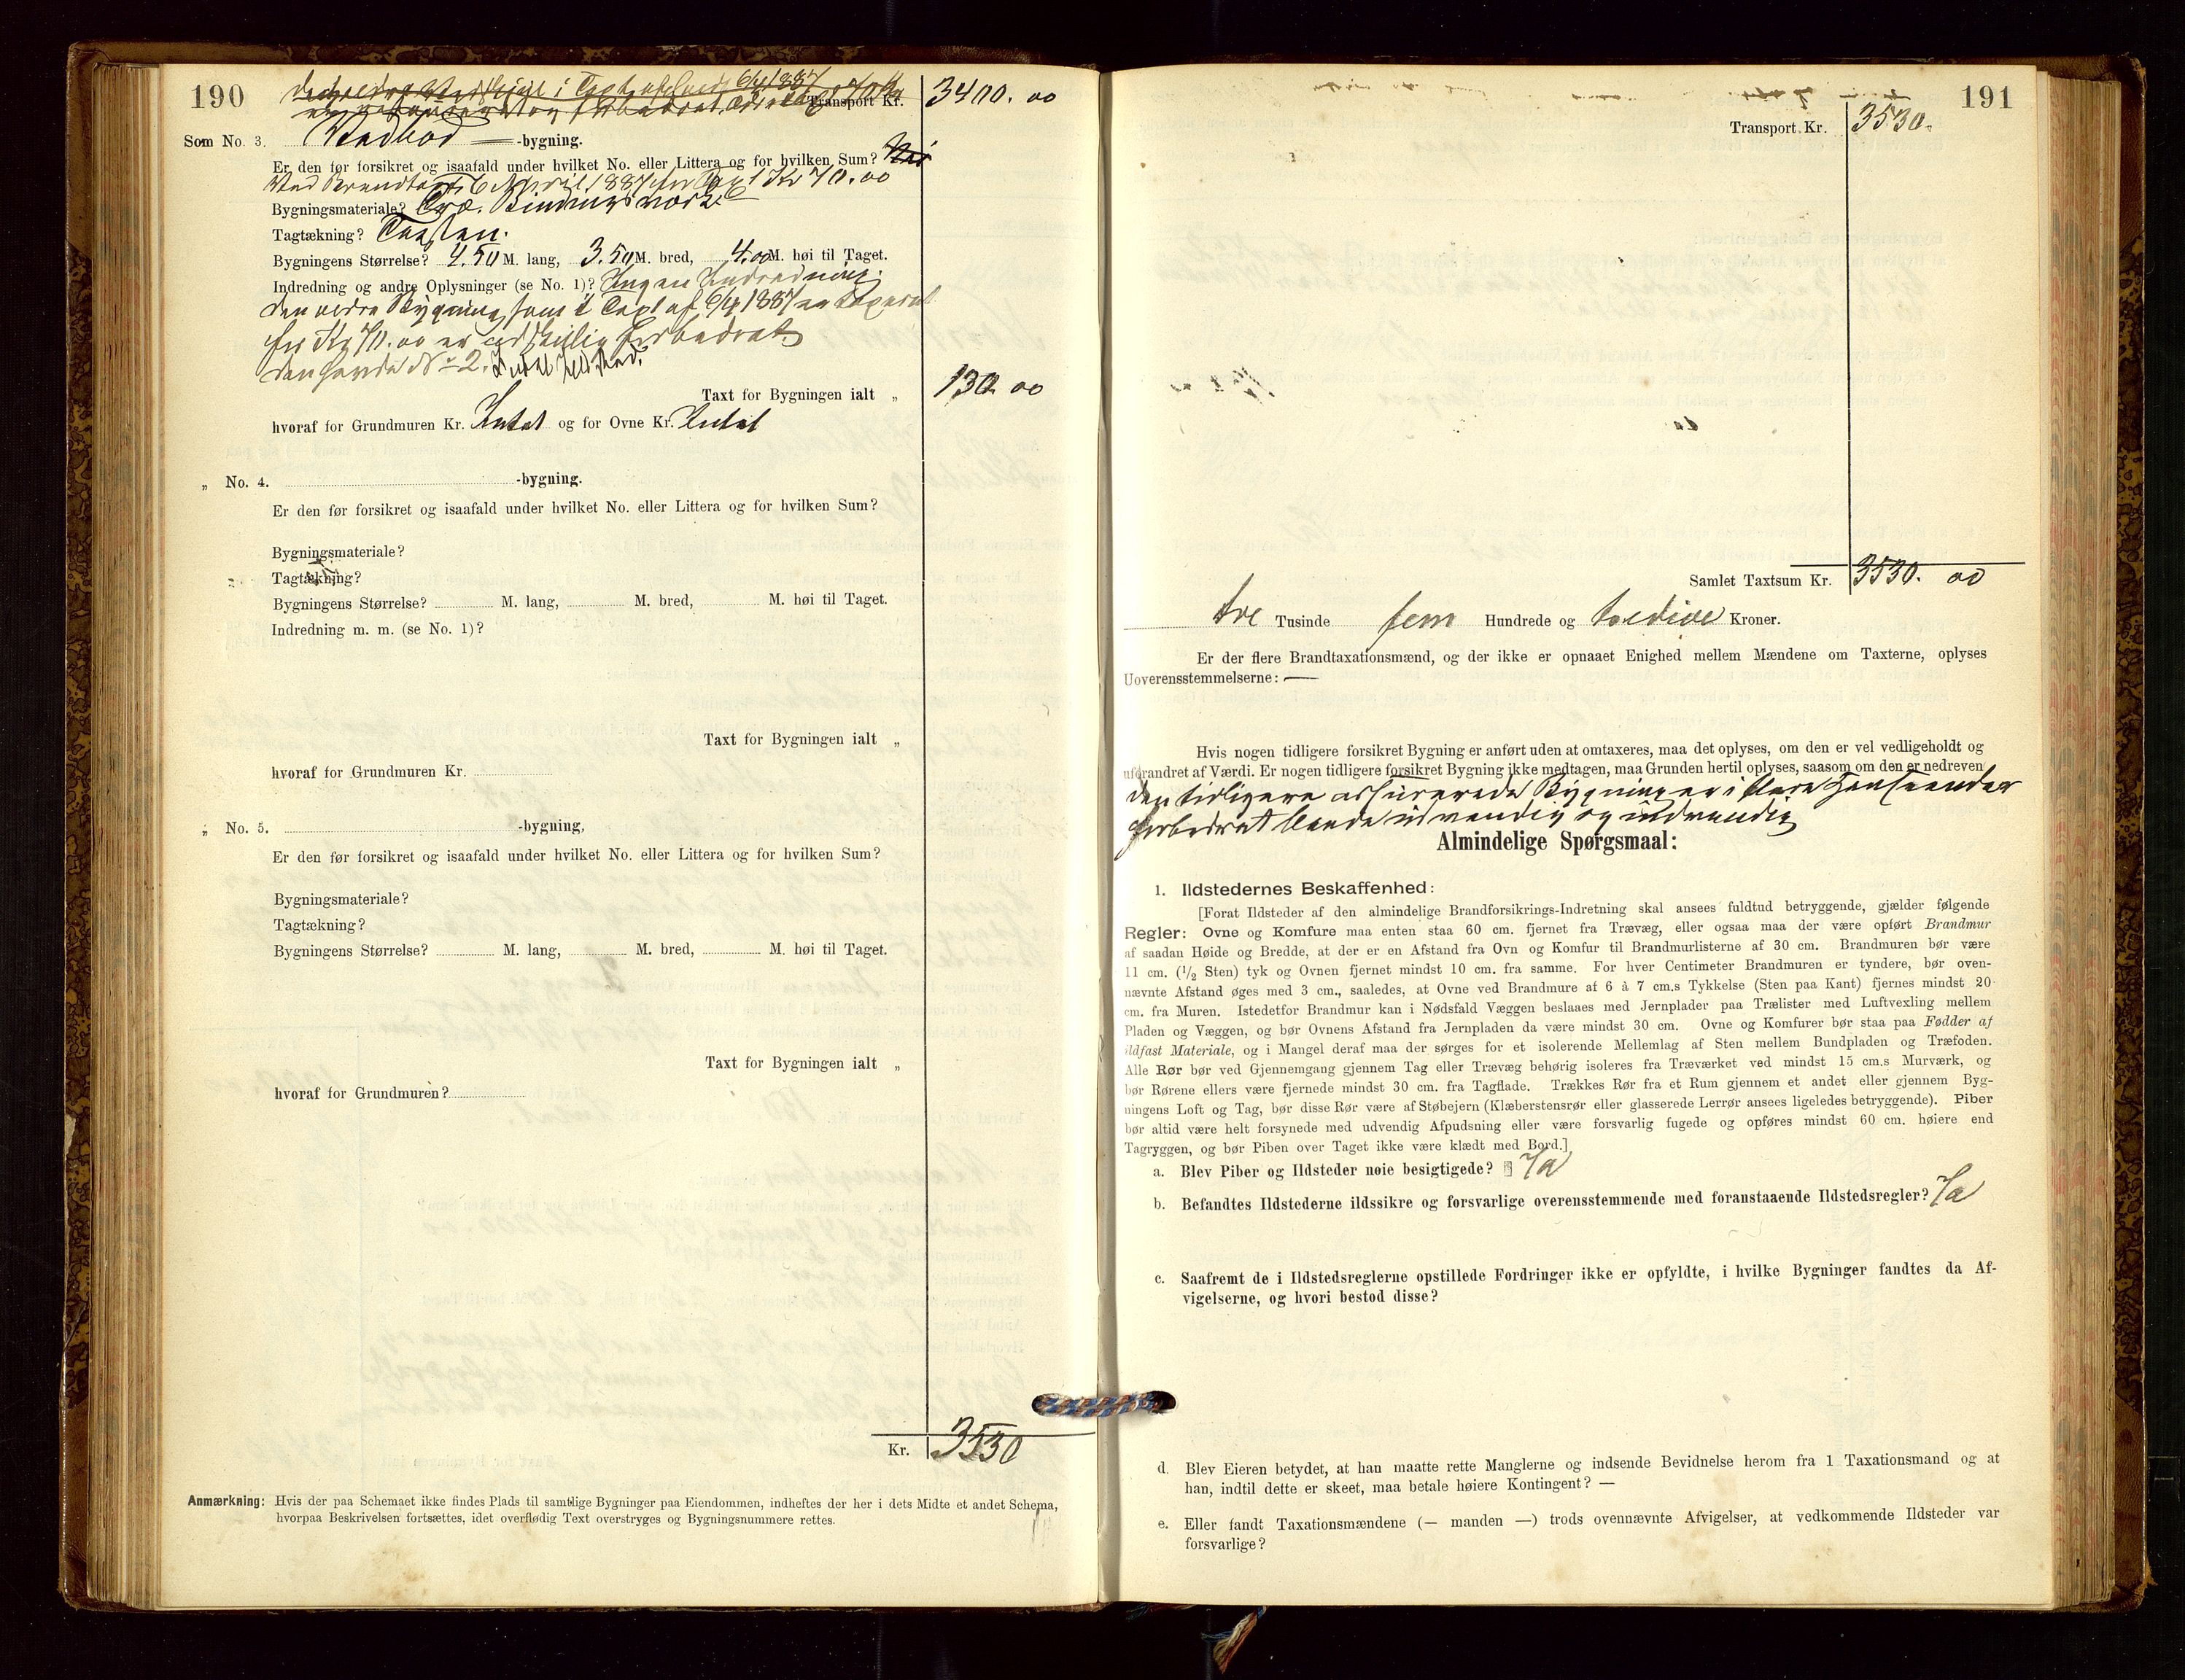 190
6/4 1887
Transport Kr. 3400. 00
Som No. 3. Vedbod -bygning.
Er den før forsikret og isaafald under hvilket No. eller Littera og for hvilken Sum? Nei
Ved Brandtaxt 6 April 1887 for Kr 70.00
Bygningsmateriale? Træ. Bindingsværk
Tagtækning? Tagsten.
Bygningens Størrelse? 4.50 M. lang, 3.50 M. bred, 4.00 M. høi til Taget.
Indredning og andre Oplysninger (se No. 1)? Ingen Indredning.
den ældre Bygning som i Taxt af 6/4 1887 er taxeret
for Kr 70.00 er adskillig forbedret
den havde No 2. Intet Ildsted.
Taxt for Bygningen ialt „ 130. 00
hvoraf for Grundmuren Kr. Intet og for Ovne Kr. Intet
„ No. 4. -bygning.
Er den før forsikret og isaafald under hvilket No. eller Littera og for hvilken Sum?
Bygningsmateriale?
Tagtækning?
Bygningens Størrelse? M. lang, M. bred, M. høi til Taget.
Indredning m. m. (se No. 1)?
Taxt for Bygningen ialt „
hvoraf for Grundmuren Kr.
„ No. 5. -bygning,
Er den før forsikret og isaafald under hvilket No. eller Littera og for hvilken Sum?
Bygningsmateriale?
Tagtækning?
Bygningens Størrelse? M. lang, M. bred, M. høi til Taget.
Taxt for Bygningen ialt „
hvoraf for Grundmuren?
Kr. 3530
Anmærkning: Hvis der paa Schemaet ikke findes Plads til samtlige Bygninger paa Eiendommen, indheftes der her i dets Midte et andet Schema,
hvorpaa Beskrivelsen fortsættes, idet overflødig Text overstryges og Bygningsnummere rettes.
191
Transport Kr. 3530.
Samlet Taxtsum Kr. 3530. 00
tre Tusinde fem Hundrede og tredive Kroner.
Er der flere Brandtaxationsmænd, og der ikke er opnaaet Enighed mellem Mændene om Taxterne, oplyses
Uoverensstemmelserne: —
Hvis nogen tidligere forsikret Bygning er anført uden at omtaxeres, maa det oplyses, om den er vel vedligeholdt og
uforandret af Værdi. Er nogen tidligere forsikret Bygning ikke medtagen, maa Grunden hertil oplyses, saasom om den er nedreven
den tidligere assurerede Bygning er i flere Henseender
forbedret baade udvendig og indvendig
Almindelige Spørgsmaal:
1. Ildstedernes Beskaffenhed:
[Forat Ildsteder af den almindelige Brandforsikrings-Indretning skal ansees fuldtud betryggende, gjælder følgende
Regler: Ovne og Komfure maa enten staa 60 cm. fjernet fra Trævæg, eller ogsaa maa der være opført Brandmur
af saadan Høide og Bredde, at der er en Afstand fra Ovn og Komfur til Brandmurlisterne af 30 cm. Brandmuren bør være
11 cm. (1/2 Sten) tyk og Ovnen fjernet mindst 10 cm. fra samme. For hver Centimeter Brandmuren er tyndere, bør oven-
nævnte Afstand øges med 3 cm., saaledes, at Ovne ved Brandmure af 6 à 7 cm.s Tykkelse (Sten paa Kant) fjernes mindst 20
cm. fra Muren. Istedetfor Brandmur kan i Nødsfald Væggen beslaaes med Jernplader paa Trælister med Luftvexling mellem
Pladen og Væggen, og bør Ovnens Afstand fra Jernpladen da være mindst 30 cm. Ovne og Komfurer bør staa paa Fødder af
ildfast Materiale, og i Mangel deraf maa der sørges for et isolerende Mellemlag af Sten mellem Bundpladen og Træfoden.
Alle Rør bør ved Gjennemgang gjennem Tag eller Trævæg behørig isoleres fra Træværket ved mindst 15 cm.s Murværk, og
bør Rørene ellers være fjernede mindst 30 cm. fra Tagflade. Trækkes Rør fra et Rum gjennem et andet eller gjennem Byg-
ningens Loft og Tag, bør disse Rør være af Støbejern (Klæberstensrør eller glasserede Lerrør ansees ligeledes betryggende). Piber
bør altid være helt forsynede med udvendig Afpudsning eller være forsvarlig fugede og opføres mindst 60 cm. høiere end
Tagryggen, og bør Piben over Taget ikke være klædt med Bord.]
a. Blev Piber og Ildsteder nøie besigtigede? Ja
b. Befandtes Ildstederne ildssikre og forsvarlige overensstemmende med foranstaaende Ildstedsregler? Ja
c. Saafremt de i Ildstedsreglerne opstillede Fordringer ikke er opfyldte, i hvilke Bygninger fandtes da Af-
vigelserne, og hvori bestod disse?
d. Blev Eieren betydet, at han maatte rette Manglerne og indsende Bevidnelse herom fra 1 Taxationsmand og at
han, indtil dette er skeet, maa betale høiere Kontingent? —
e. Eller fandt Taxationsmændene (— manden —) trods ovennævnte Afvigelser, at vedkommende Ildsteder var
forsvarlige?